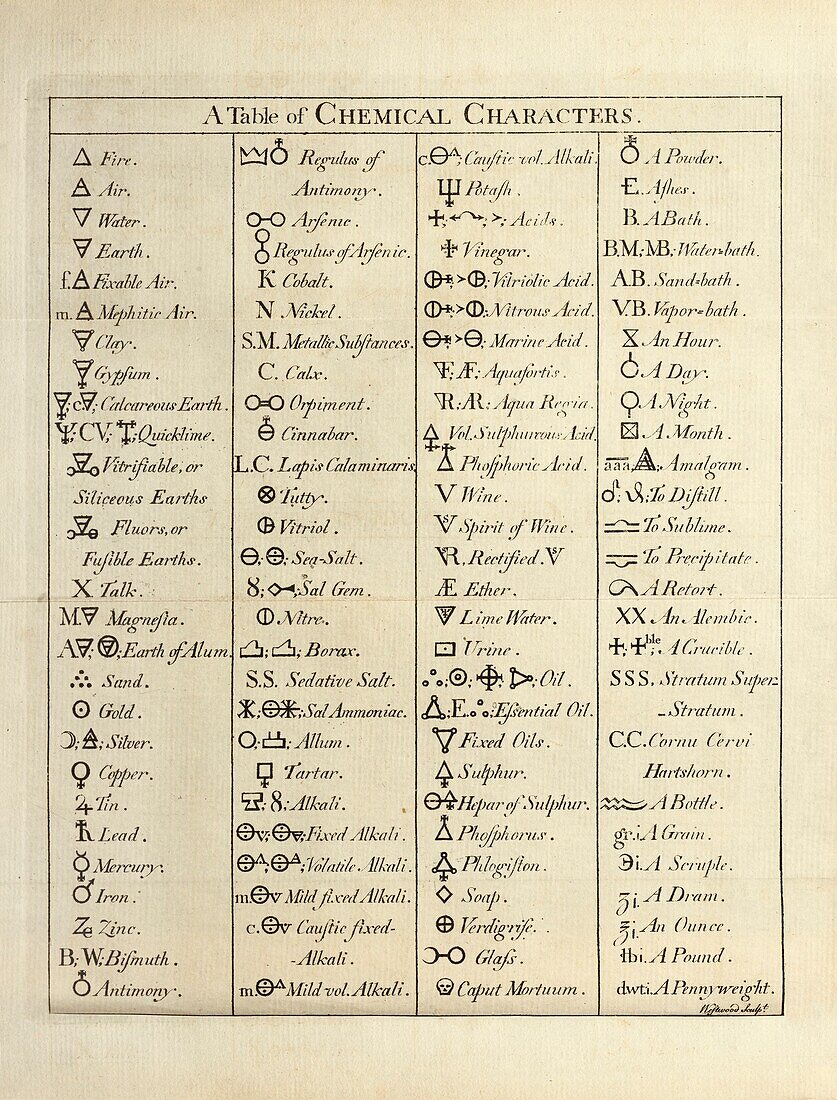 A Table of CHEMICAL CHARACTERS.
🜂 Fire.
🜁 Air.
🜄 Water.
🜃 Earth.
f.🜁 Fixable Air.
m.🜁 Mephitic Air.
Clay.
Gypsum.
; c🜃; Calcareous Earth.
; CV; ; Quicklime.
Vitrifiable, or
Siliceous Earths
Fluors, or
Fusible Earths.
X Talk.
M.🜃 Magnesia.
A🜃; ; Earth of Alum.
Sand.
☉ Gold.
☽; ; Silver.
♀ Copper.
♃ Tin.
♄ Lead.
☿ Mercury.
♂ Iron.
Ze Zinc.
B; W; Bismuth.
♁ Antimony.
♁ Regulus of
Antimony.
Arsenic.
Regulus of Arsenic.
K Cobalt.
N Nickel.
S.M. Metallic Substances.
C. Calx.
Orpiment.
Cinnabar.
L.C. Lapis Calaminaris
⊗ Tutty.
Vitriol.
⊖; ; Sea-Salt.
8; ; Sal Gem.
⦶ Nitre.
; ; Borax.
S.S. Sedative Salt.
; ; Sal Ammoniac.
O; ; Allum.
Tartar.
; 8; Alkali.
v; ; Fixed Alkali.
; ; Volatile Alkali.
m. v Mild fixed Alkali.
c. v Caustic fixed-
-Alkali.
m. Mild vol. Alkali.
c. ; Caustic vol. Alkali.
Potash.
; ; ; Acids.
Vinegar.
; Vitriolic Acid.
; Nitrous Acid.
; Marine Acid.
; Æ; Aquafortis.
; AR; Aqua Regia.
Vol. Sulphureous Acid.
Phosphoric Acid.
V Wine.
Spirit of Wine.
VR, Rectified.
Æ Ether.
Lime Water.
⊡ Urine.
; ☉; ; ; Oil.
; E. ; Essential Oil.
Fixed Oils.
🜍 Sulphur.
Hepar of Sulphur.
Phosphorus.
Phlogiston.
◇ Soap.
⊕ Verdigrise.
Glass.
Caput Mortuum.
♁ A Powder.
E. Ashes.
B. A Bath.
B.M; MB; Water=bath.
A.B. Sand=bath.
V.B. Vapor=bath.
An Hour.
A Day.
A Night.
⊠ A Month.
aaa, ; Amalgam.
; ; To Distill.
To Sublime.
To Precipitate.
A Retort.
XX An Alembic.
; ble; A Crucible.
SSS. Stratum Super=
-Stratum.
C.C. Cornu Cervi
Hartshorn.
A Bottle.
gr.i A Grain.
℈i. A Scruple.
ʒi. A Dram.
℥i. An Ounce.
℔i. A Pound.
dwt.i. A Pennyweight.
Westwood Sculpt.